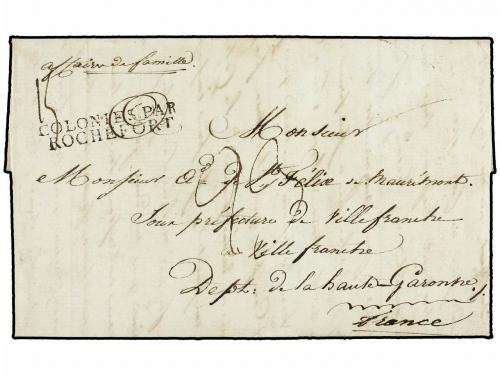 affaires de famille.
15
COLONIES PAR
ROCHEFORT
Monsieur
Monsieur de St. Felix de Maurémont.
Sous préfecture de Villefranche
a Villefranche
Dept: de la haute-Garonne.
France